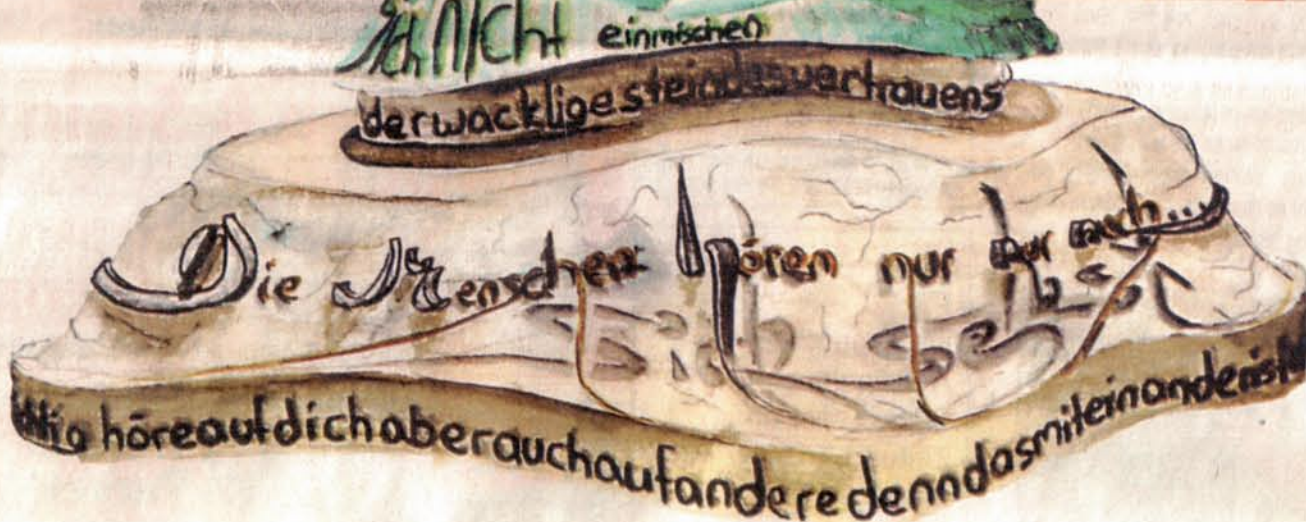 ich Nicht einmischen
derwackligesteindesvertrauens
Die Menschen hören nur nur auch...
sich selbst
höreaufdichaberauchaufanderedenndasmiteinanderist